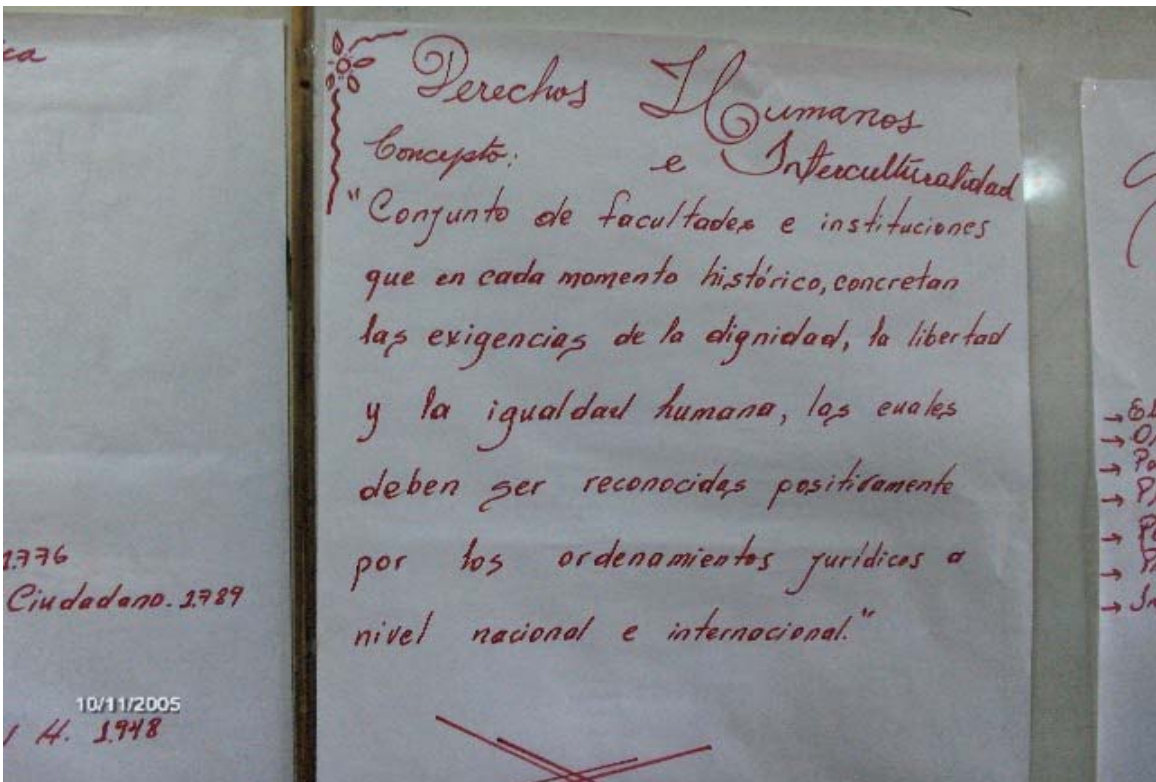 1776
Ciudadano. 1789
H. 1948
10/11/2005
Derechos Humanos
Concepto: e Interculturalidad
"Conjunto de facultades e instituciones
que en cada momento histórico, concretan
las exigencias de la dignidad, la libertad
y la igualdad humana, las cuales
deben ser reconocidas positivamente
por los ordenamientos jurídicos a
nivel nacional e internacional."